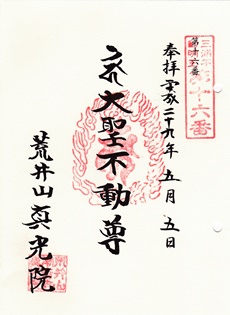 第十六番
奉拝 平成二十九年 五月 五日
大聖不動尊
荒井山真光院